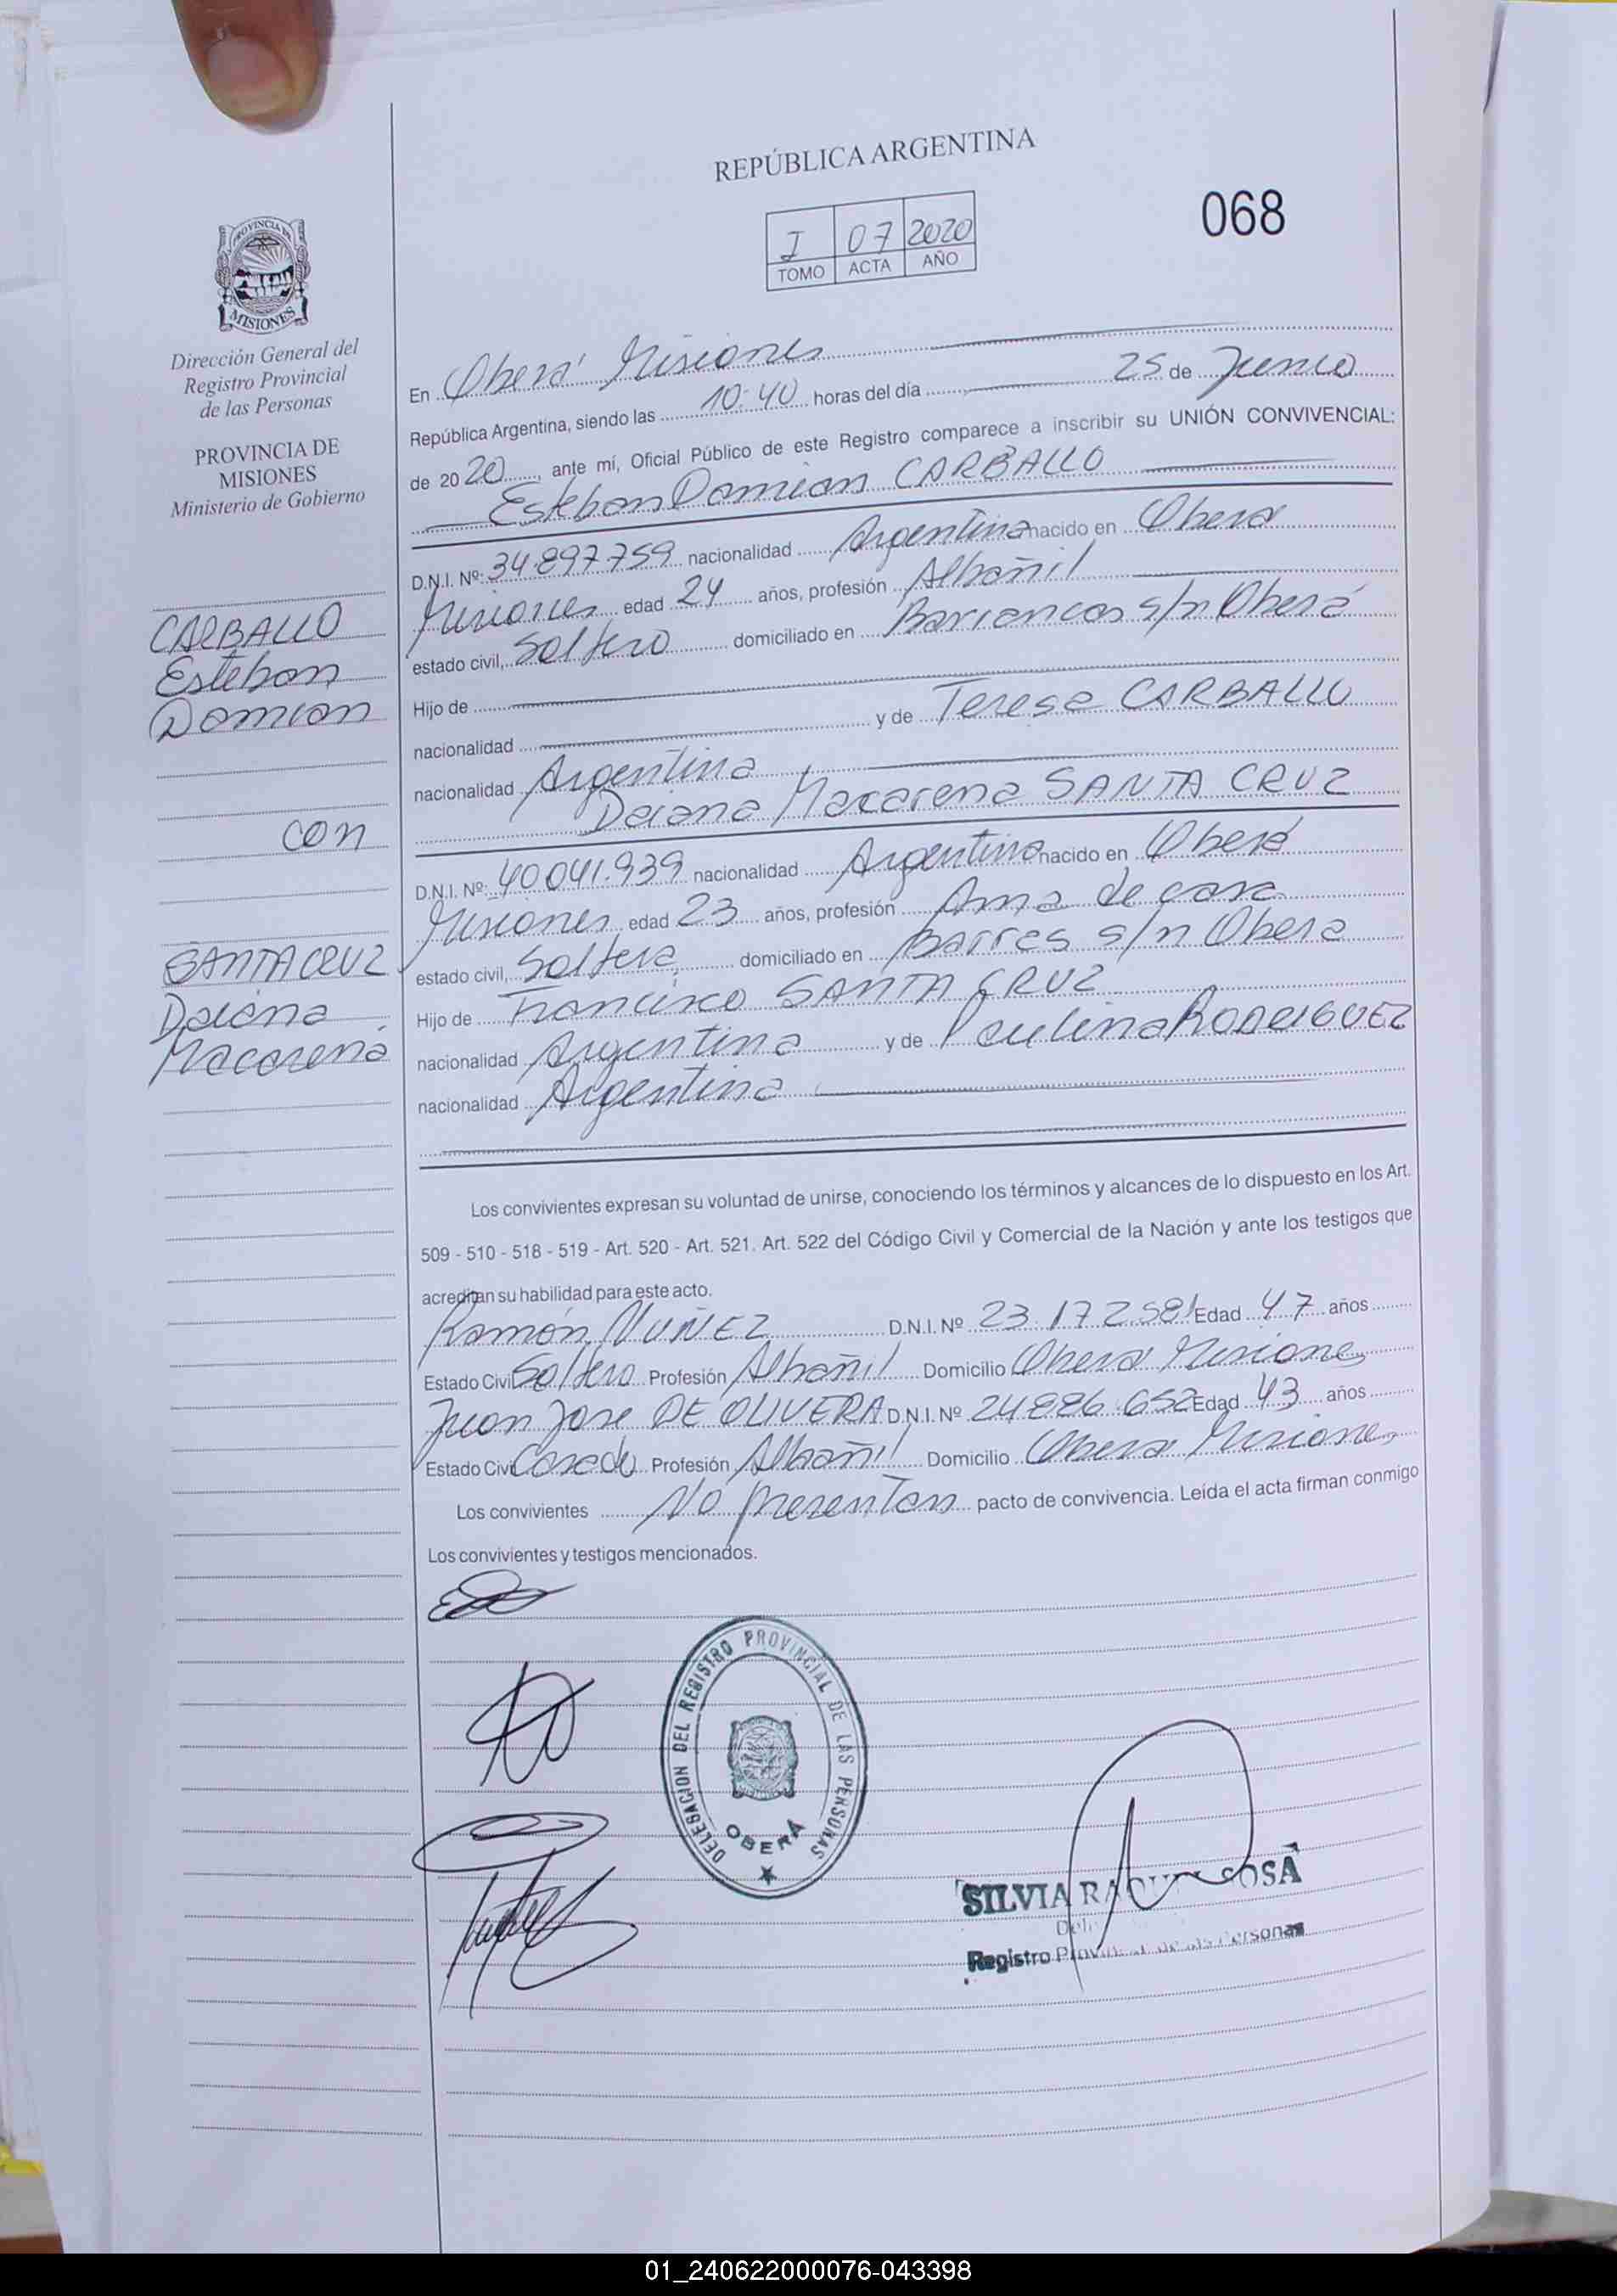 REPÚBLICA ARGENTINA
068
I 07 2020
TOMO ACTA AÑO
PROVINCIA DE
MISIONES
Dirección General del
Registro Provincial
de las Personas
PROVINCIA DE
MISIONES
Ministerio de Gobierno
CARBALLO
Esteban
Damian
con
SANTA CRUZ
Daiana
Macarena
En Oberá Misiones
República Argentina, siendo las 10:40 horas del día 25 de Junio
de 2020, ante mí, Oficial Público de este Registro comparece a inscribir su UNIÓN CONVIVENCIAL:
Esteban Damian CARBALLO
D.N.I. Nº: 34.897.759 nacionalidad Argentina nacido en Obera
Misiones edad 24 años, profesión Albañil
estado civil, Soltero domiciliado en Barrancas s/n Oberá
Hijo de
nacionalidad y de Teresa CARBALLO
nacionalidad Argentina
Daiana Macarena SANTA CRUZ
D.N.I. Nº: 40.041.939 nacionalidad Argentina nacido en Oberá
Misiones edad 23 años, profesión Ama de casa
estado civil, Soltera domiciliado en s/n Obera
Hijo de Francisco SANTA CRUZ
nacionalidad Argentina y de Paulina RODRIGUEZ
nacionalidad Argentina
Los convivientes expresan su voluntad de unirse, conociendo los términos y alcances de lo dispuesto en los Art.
509 - 510 - 518 - 519 - Art. 520 - Art. 521. Art. 522 del Código Civil y Comercial de la Nación y ante los testigos que
acreditan su habilidad para este acto.
Ramón NUÑEZ D.N.I. Nº 23.172.581 Edad 47 años
Estado Civil Soltero Profesión Albañil Domicilio Obera Misiones
Juan Jose DE OLIVERA D.N.I. Nº 24.886.652 Edad 43 años
Estado Civil Casado Profesión Albañil Domicilio Obera Misiones
Los convivientes No presentan pacto de convivencia. Leída el acta firman conmigo
Los convivientes y testigos mencionados.
DELEGACION DEL REGISTRO PROVINCIAL DE LAS PERSONAS
OBERÁ
SILVIA RAQUEL SOSA
Registro Provincial de las Personas
01_240622000076-043398